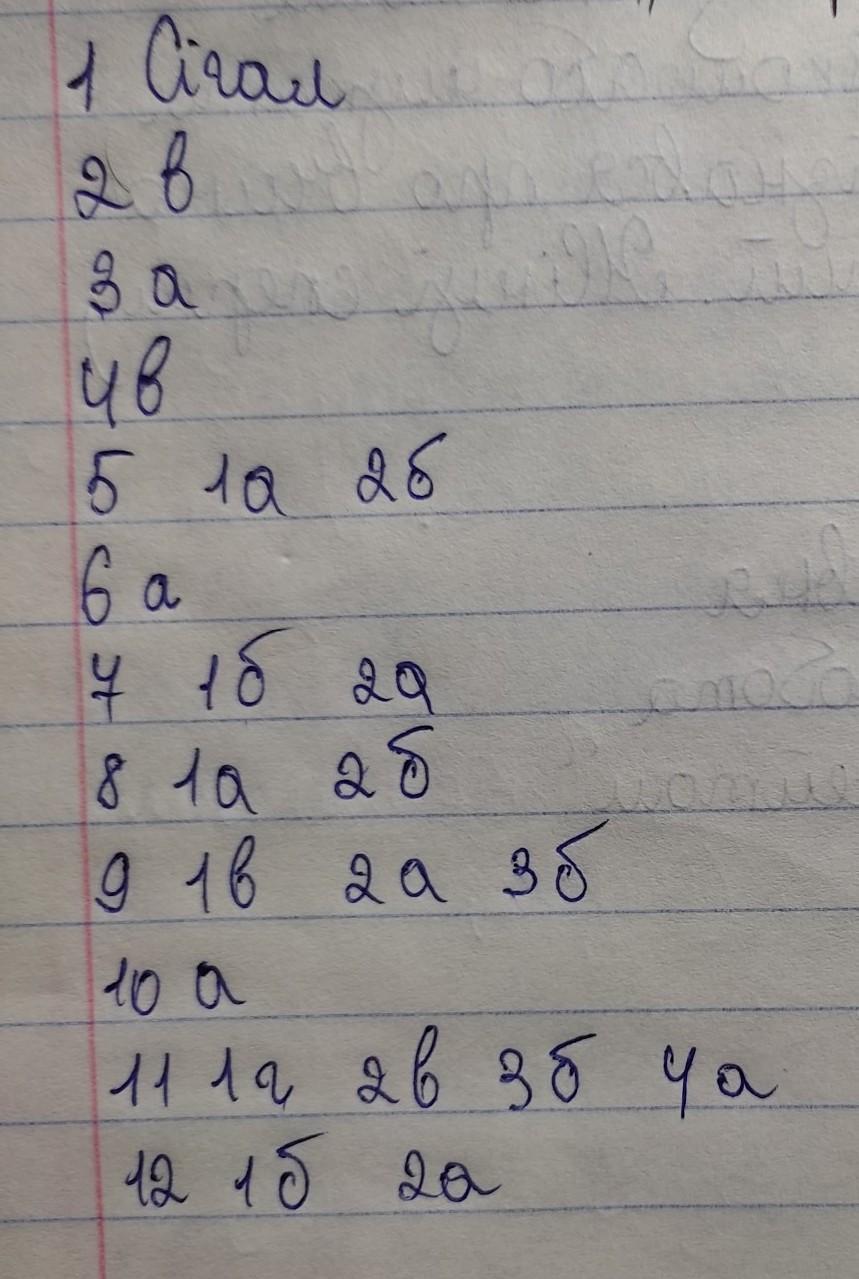 1 Сігал
2 в
3 а
4 в
5 1а 2б
6 а
7 1б 2а
8 1а 2б
9 1в 2а 3б
10 а
11 1г 2в 3б 4а
12 1б 2а